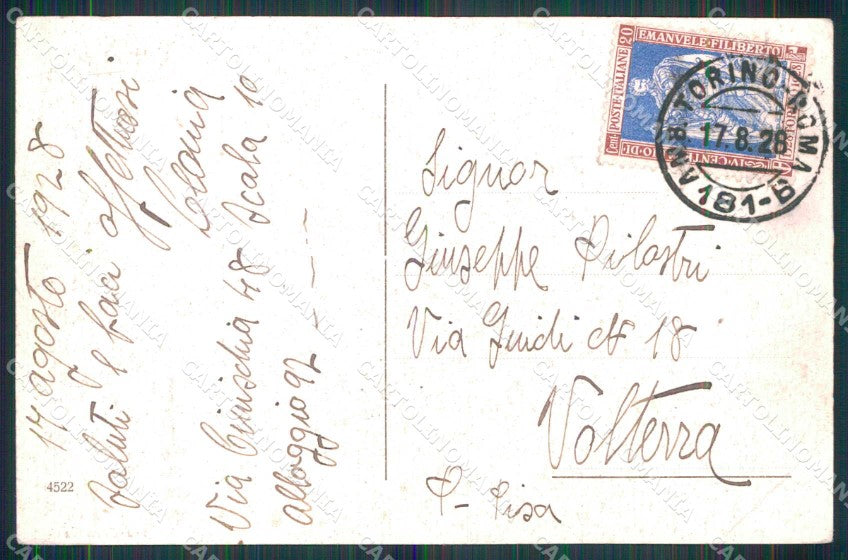 17 agosto 1928
Saluti e baci affettuosi
Via Cimschia 48 Scala 10
alloggio 92
4522
Signor
Giuseppe Pilastri
Via Guidi N 18
Volterra
P- Pisa
POSTE·ITALIANE 20
Cent
EMANVELE·FILIBERTO
TORINO-ROMA
17.8.28
AMB.
181-B
CARTOLINOMANIA